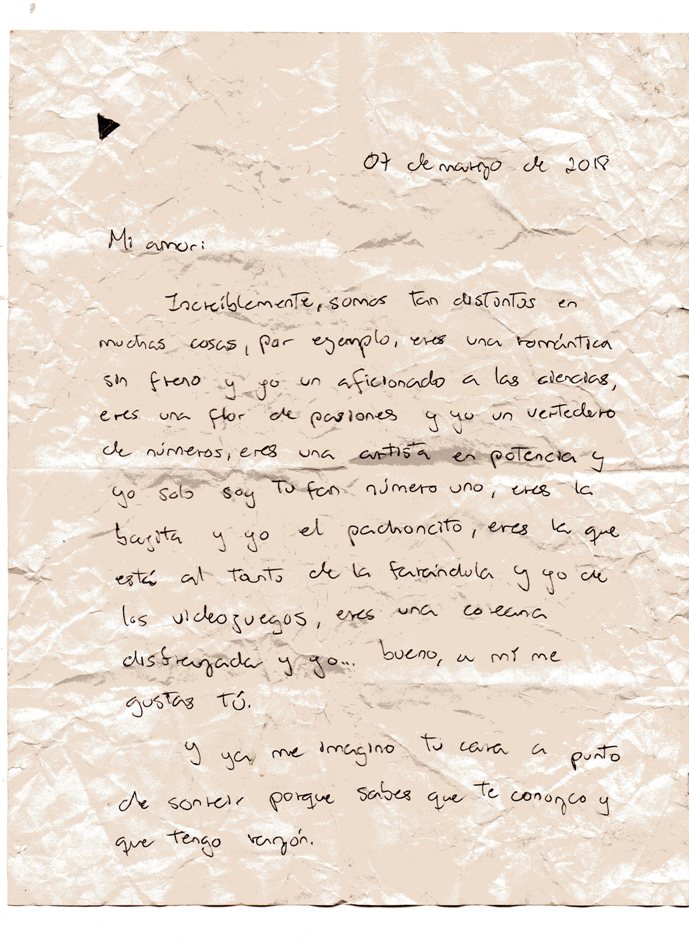 07 de marzo de 2018
Mi amor:
Increíblemente, somos tan distintos en
muchas cosas, por ejemplo, eres una romántica
sin freno y yo un aficionado a las ciencias,
eres una flor de pasiones y yo un vertedero
de números, eres una artista en potencia y
yo solo soy tu fan número uno, eres la
bajita y yo el pachoncito, eres la que
está al tanto de la farándula y yo de
los videojuegos, eres una coreana
disfrazada y yo... bueno, a mí me
gustas tú.
Y ya me imagino tu cara a punto
de sonreír porque sabes que te conozco y
que tengo razón.